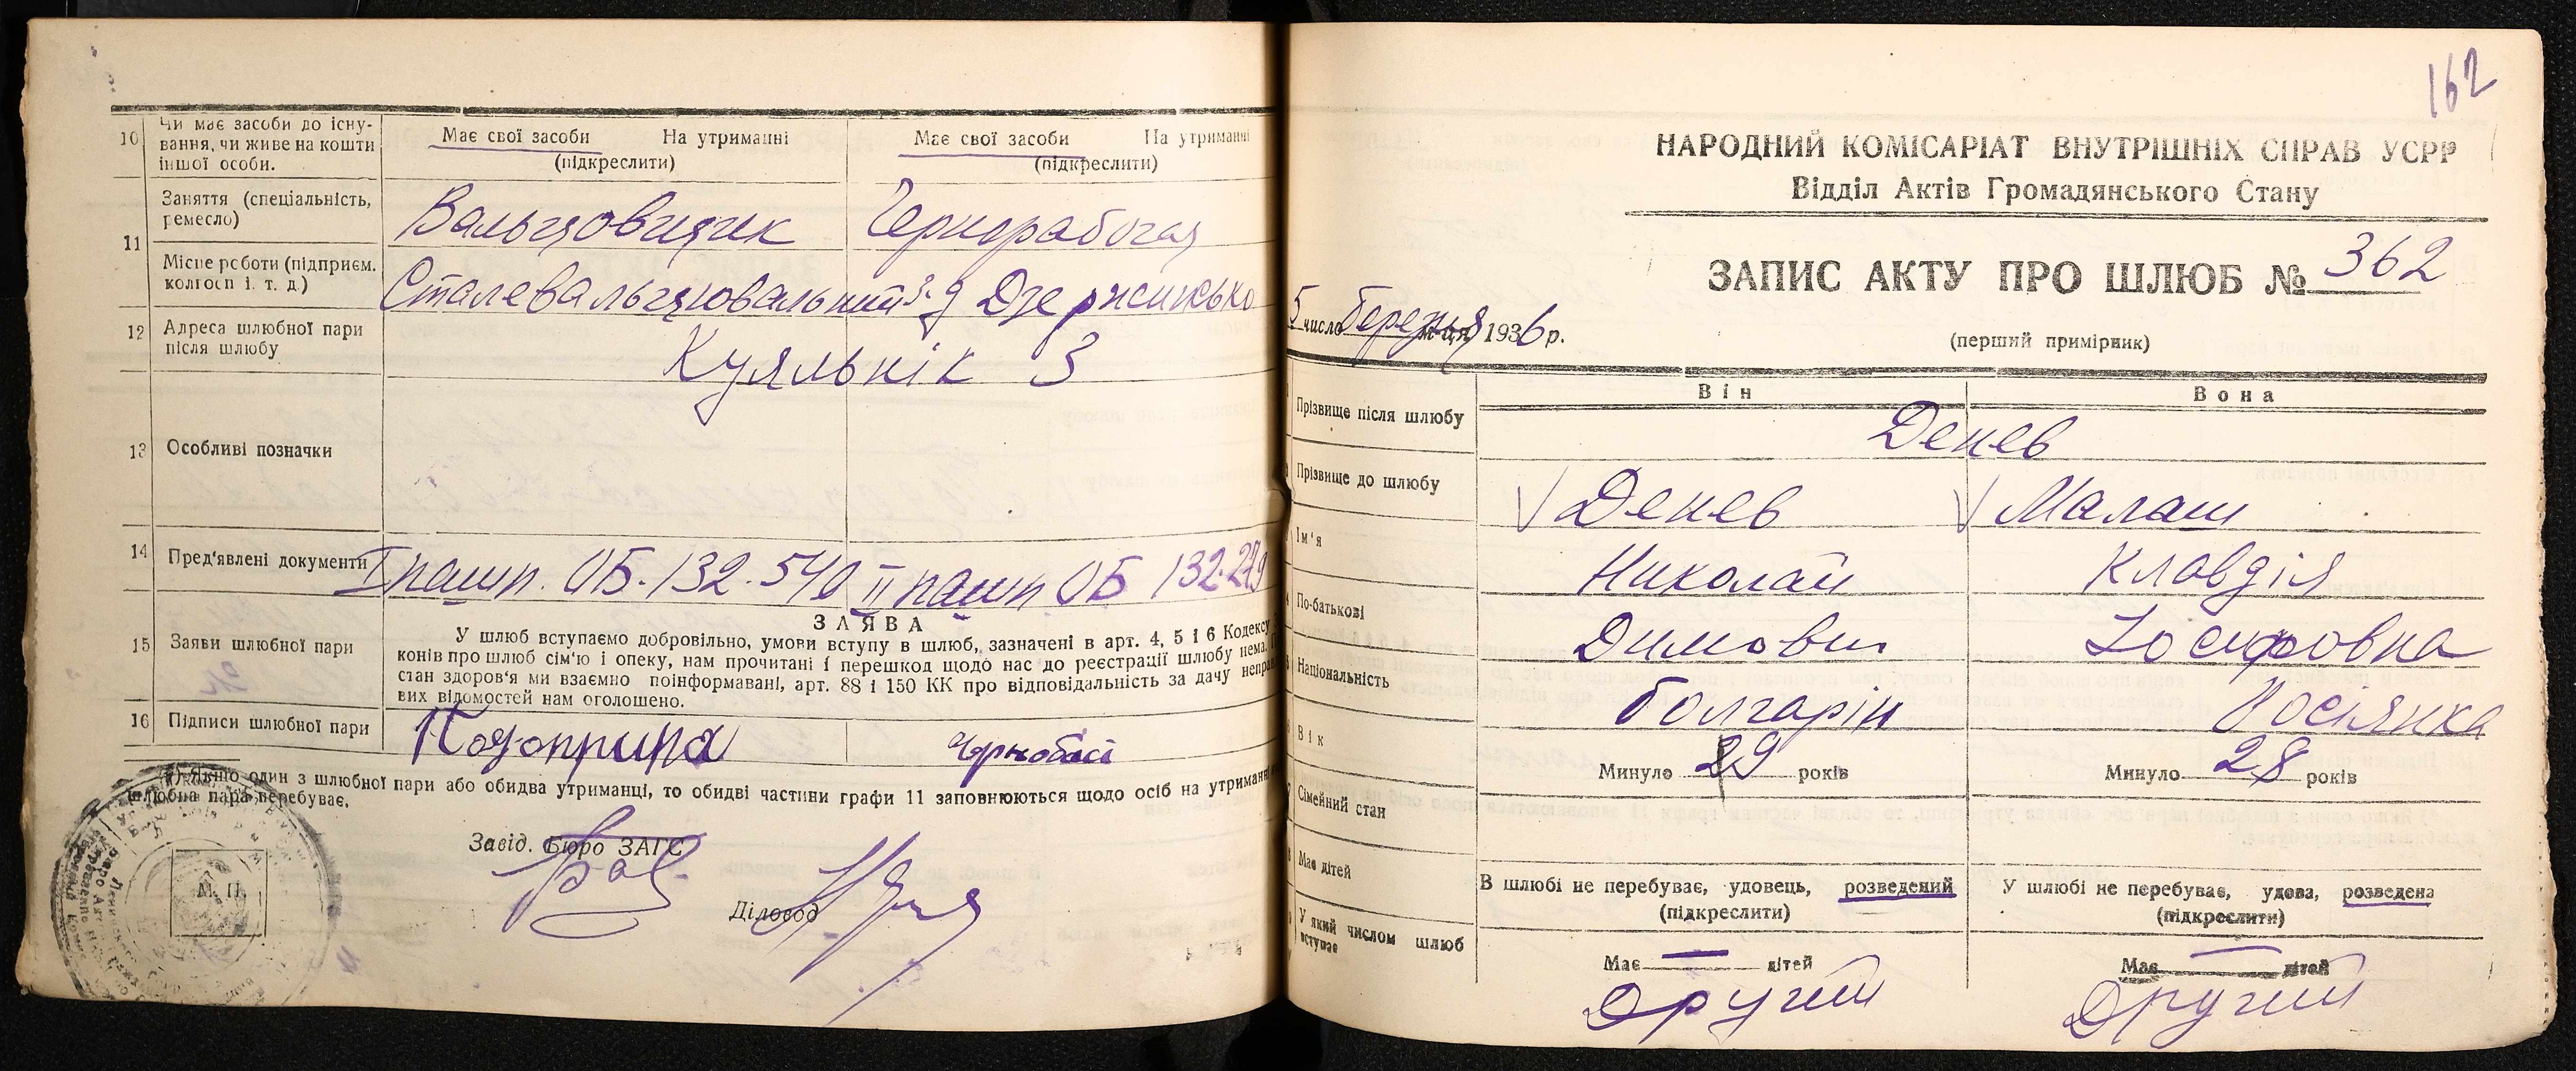 10 Чи має засоби до існу-
вання, чи живе на кошти
іншої особи.
Має свої засоби На утриманні
(підкреслити)
Має свої засоби На утриманні
(підкреслити)
11 Заняття (спеціальність,
ремесло)
Вальцовщик Чернорабочая
Місце роботи (підприєм.
колгосп і. т. д.)
Сталевальцювальний з-д Дзержинсько
12 Адреса шлюбної пари
після шлюбу
Куяльнік 3
13 Особливі позначки
14 Пред'явлені документи
I пашп. ОБ. 132. 540 II пашп ОБ
15 Заяви шлюбної пари
ЗАЯВА
У шлюб вступаємо добровільно, умови вступу в шлюб, зазначені в арт. 4, 5 і 6 Кодексу
конів про шлюб сім'ю і опеку, нам прочитані і перешкод щодо нас до реєстрації шлюбу нема.
стан здоров'я ми взаємно поінформавані, арт. 88 і 150 КК про відповідальність за дачу неправ
вих відомостей нам оголошено.
16 Підписи шлюбної пари
*) Якщо один з шлюбної пари або обидва утриманці, то обидві частини графи 11 заповнюються щодо осіб на утриманні
шлюбна пара перебуває.
Завід. Бюро ЗАГС
Діловод
М. П.
162
НАРОДНИЙ КОМІСАРІАТ ВНУТРІШНІХ СПРАВ УСРР
Відділ Актів Громадянського Стану
ЗАПИС АКТУ ПРО ШЛЮБ № 362
5 число березня м-ця 1936 р.
(перший примірник)
Він Вона
Прізвище після шлюбу Денев
Прізвище до шлюбу Денев Малаш
Ім'я Николай Клавдія
По-батькові Димович Іосифовна
Національність болгарін Росіянка
Вік Минуло 29 років Минуло 28 років
Сімейний стан
В шлюбі не перебуває, удовець, розведений
(підкреслити)
У шлюбі не перебуває, удова, розведена
(підкреслити)
Має дітей
Має — дітей Має — дітей
У який числом шлюб
вступає
Другий Другий